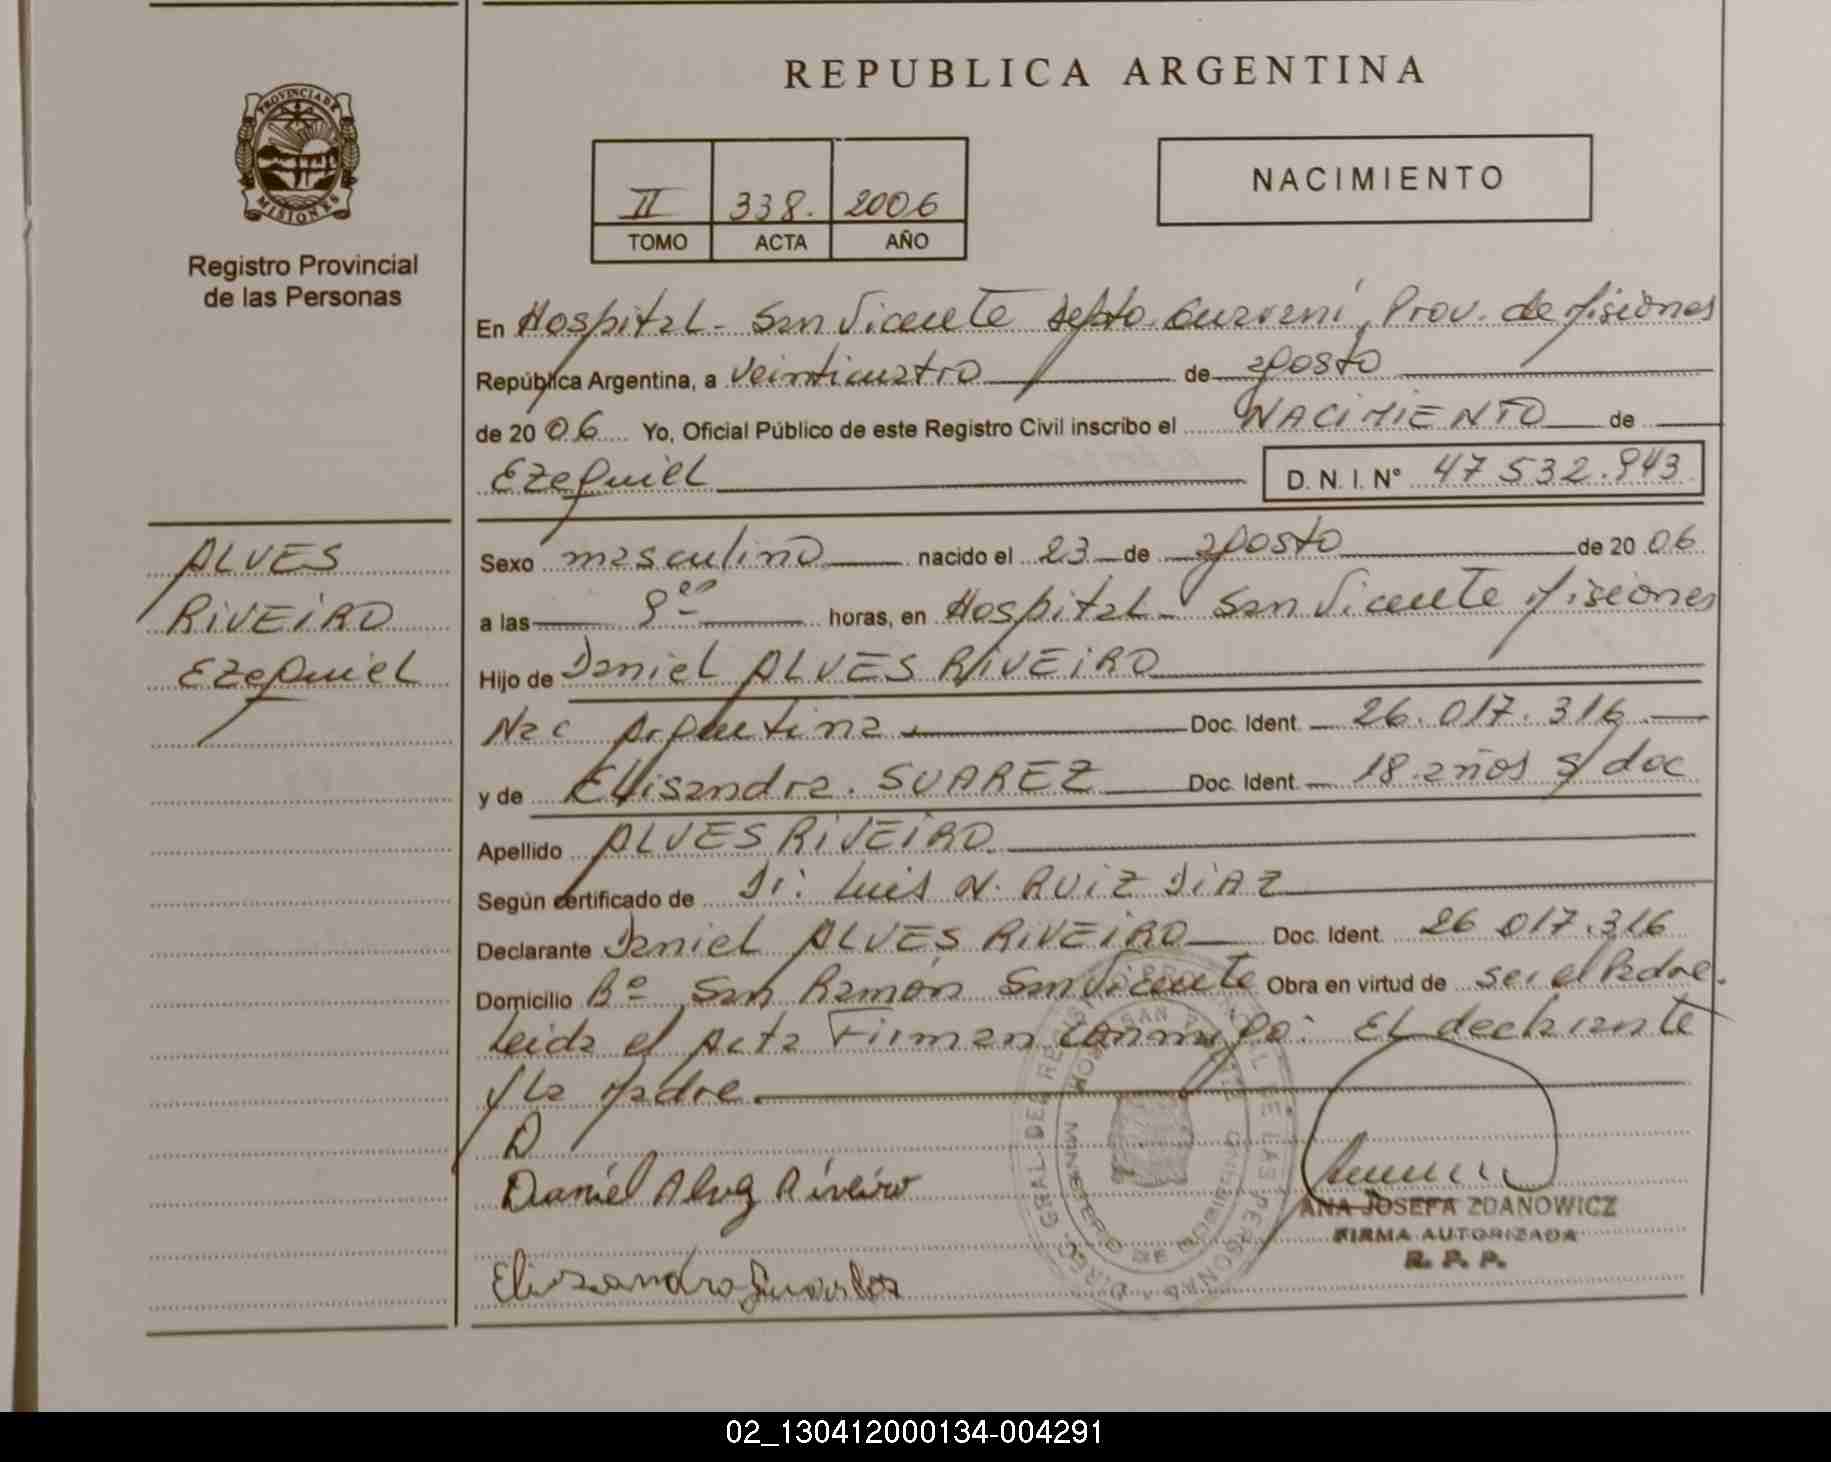 REPUBLICA ARGENTINA
PROVINCIA DE
MISIONES
Registro Provincial
de las Personas
II 338. 2006
TOMO ACTA AÑO
NACIMIENTO
En Hospital - San Vicente depto. Guaraní, Prov. de Misiones
República Argentina, a veinticuatro de agosto
de 2006 Yo, Oficial Público de este Registro Civil inscribo el NACIMIENTO de
Ezequiel D. N. I. Nº 47 532.943
ALVES
RIVEIRO
Ezequiel
Sexo masculino nacido el 23 de agosto de 2006
a las horas, en Hospital - San Vicente Misiones
Hijo de Daniel ALVES RIVEIRO
Nac Argentina Doc. Ident. 26.017.316
y de Elisandra. SUAREZ Doc. Ident. 18 años s/doc
Apellido ALVES RIVEIRO
Según certificado de Dr: Luis N. RUIZ DIAZ
Declarante Daniel ALVES RIVEIRO Doc. Ident. 26 017.316
Domicilio Bº San Ramón San Vicente Obra en virtud de ser el Padre.
Leida el Acta Firman conmigo: El declarante
y la Madre
D
Daniel Alves Riveiro
Elizandra
ANA JOSEFA ZDANOWICZ
FIRMA AUTORIZADA
R. P. P.
02_130412000134-004291